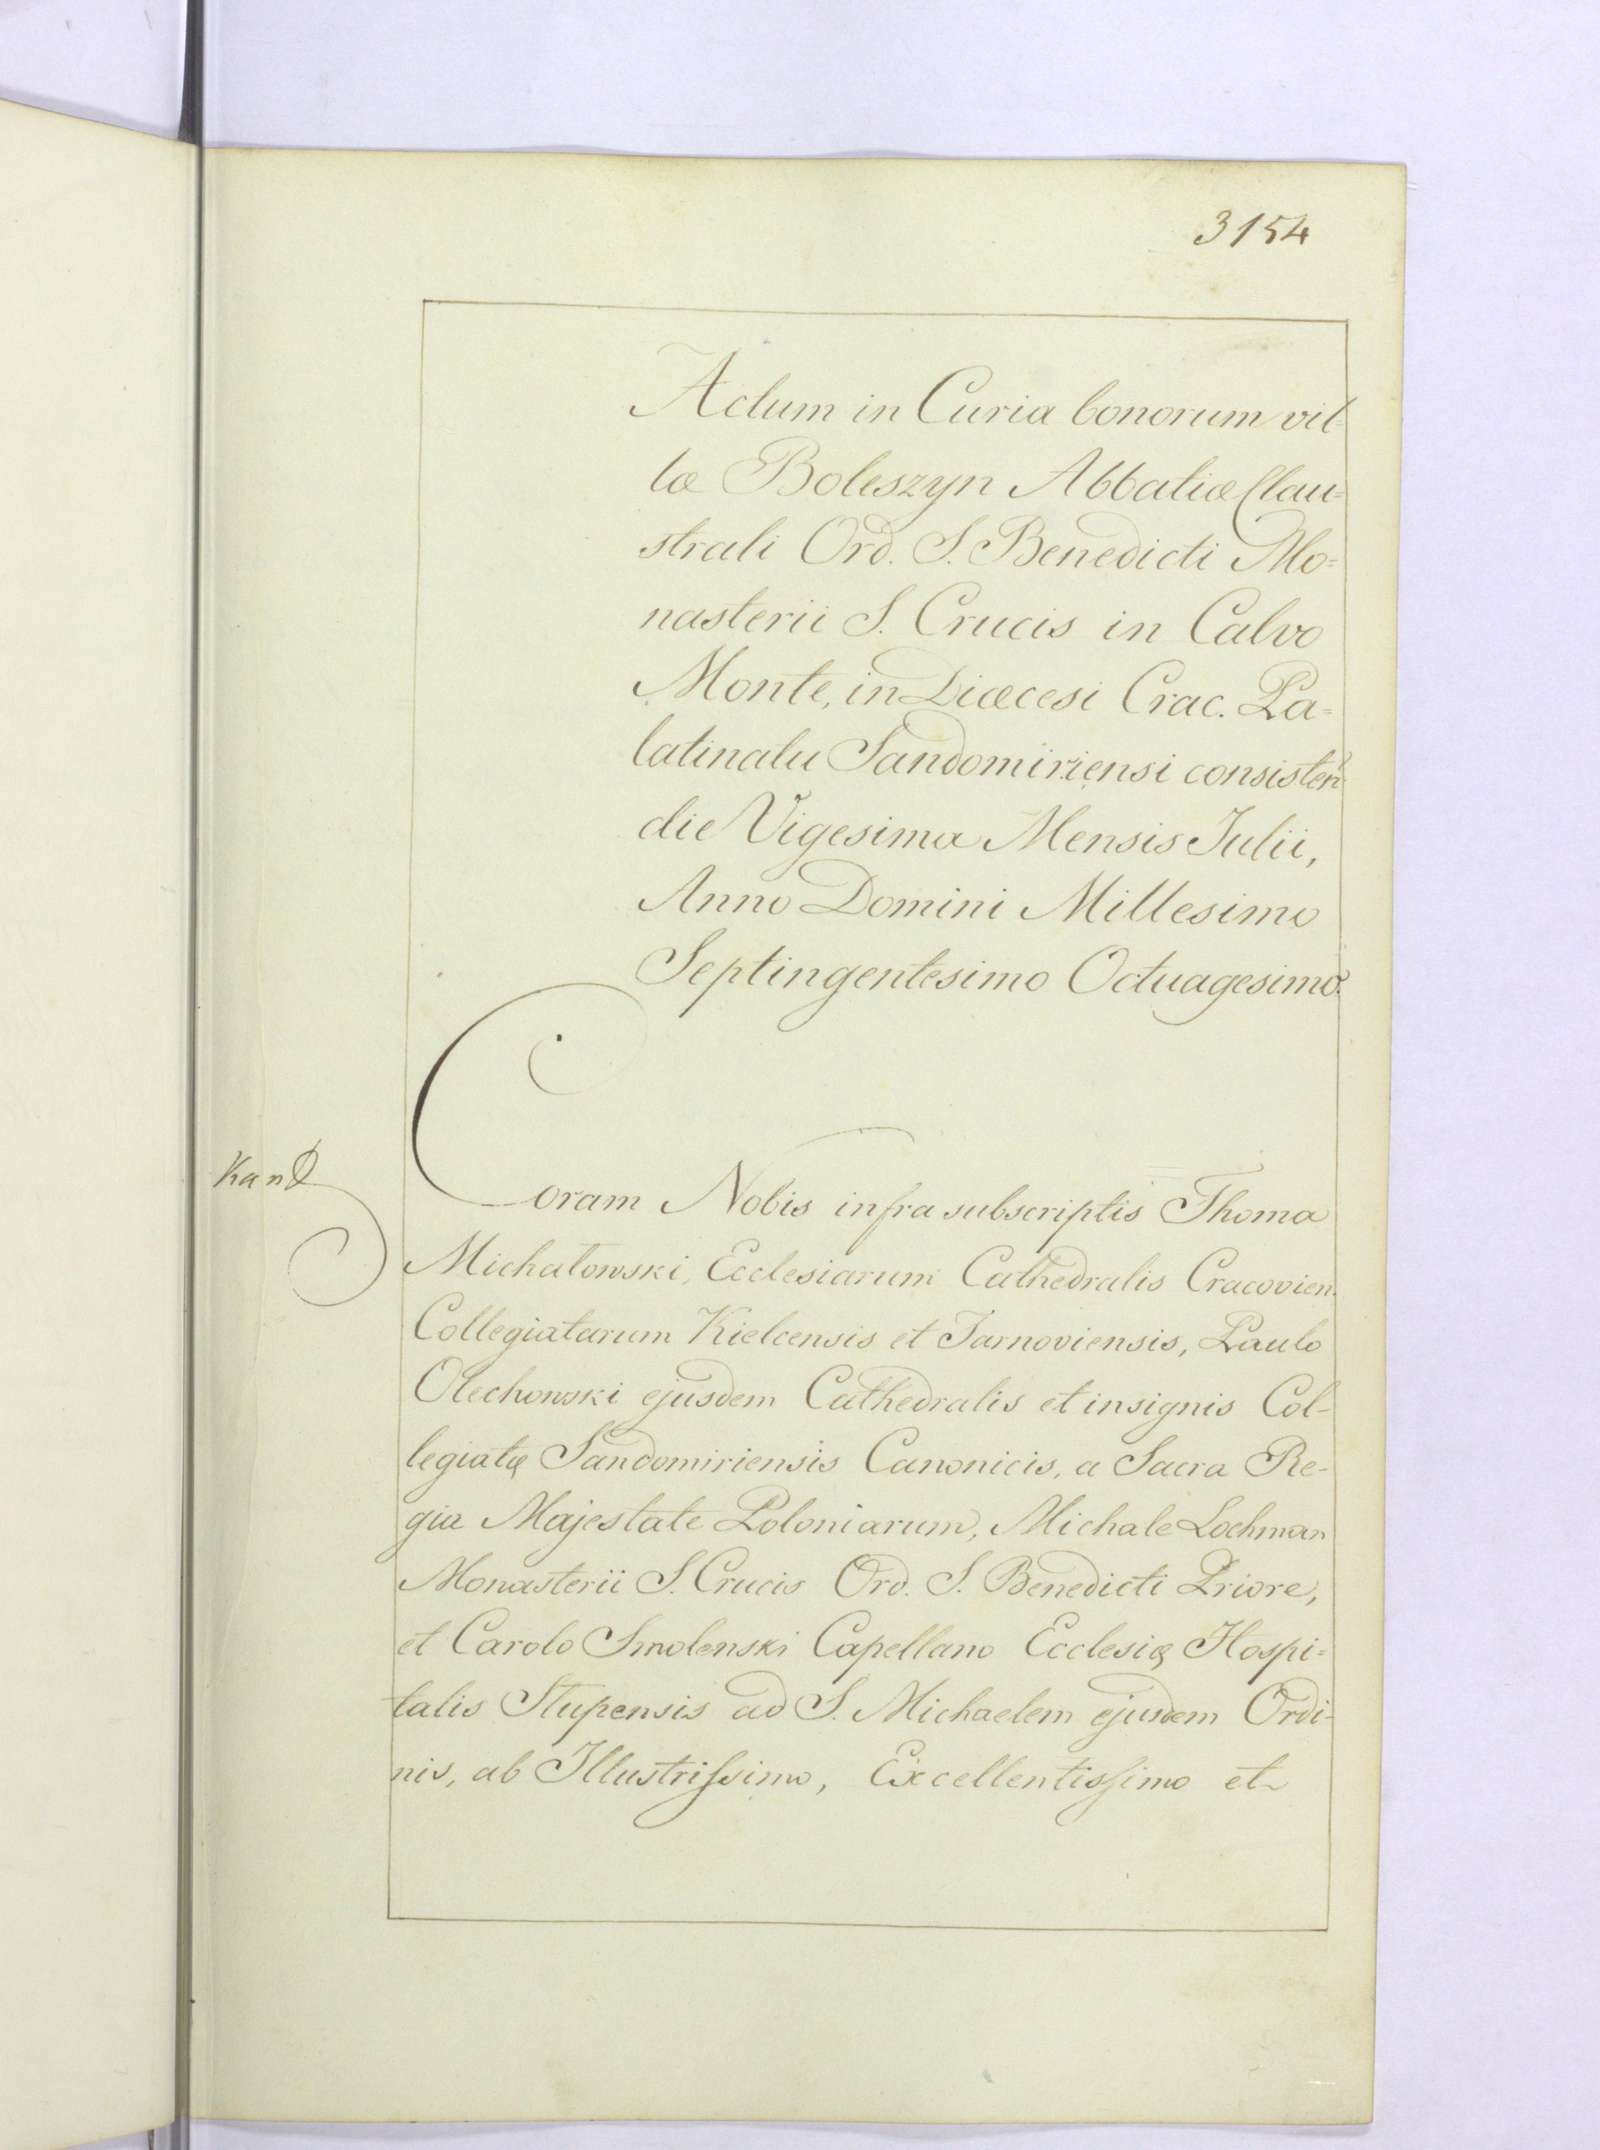 3154
Actum in Curia bonorum vil-
læ Boleszyn Abbatiæ Clau=
strali Ord. S. Benedicti Mo=
nasterii S. Crucis in Calvo
Monte, in Diœcesi Crac. Pa=
latinatu Sandomiriensi consisten.
die Vigesima Mensis Julii,
Anno Domini Millesimo
Septingentesimo Octuagesimo.
Coram Nobis infra subscriptis Thoma
Michałowski, Ecclesiarum Cathedralis Cracovien.
Collegiatarum Kielcensis et Tarnoviensis, Paulo
Olechowski ejusdem Cathedralis et insignis Col-
legiatę Sandomiriensis Canonicis, a Sacra Re-
gia Majestate Poloniarum, Michale Lochman
Monasterii S. Crucis Ord. S. Benedicti Priore,
et Carolo Smolenski Capellano Ecclesię Hospi=
talis Stupensis ad S. Michaelem ejusdem Ordi-
nis, ab Illustrissimo, Excellentissimo et